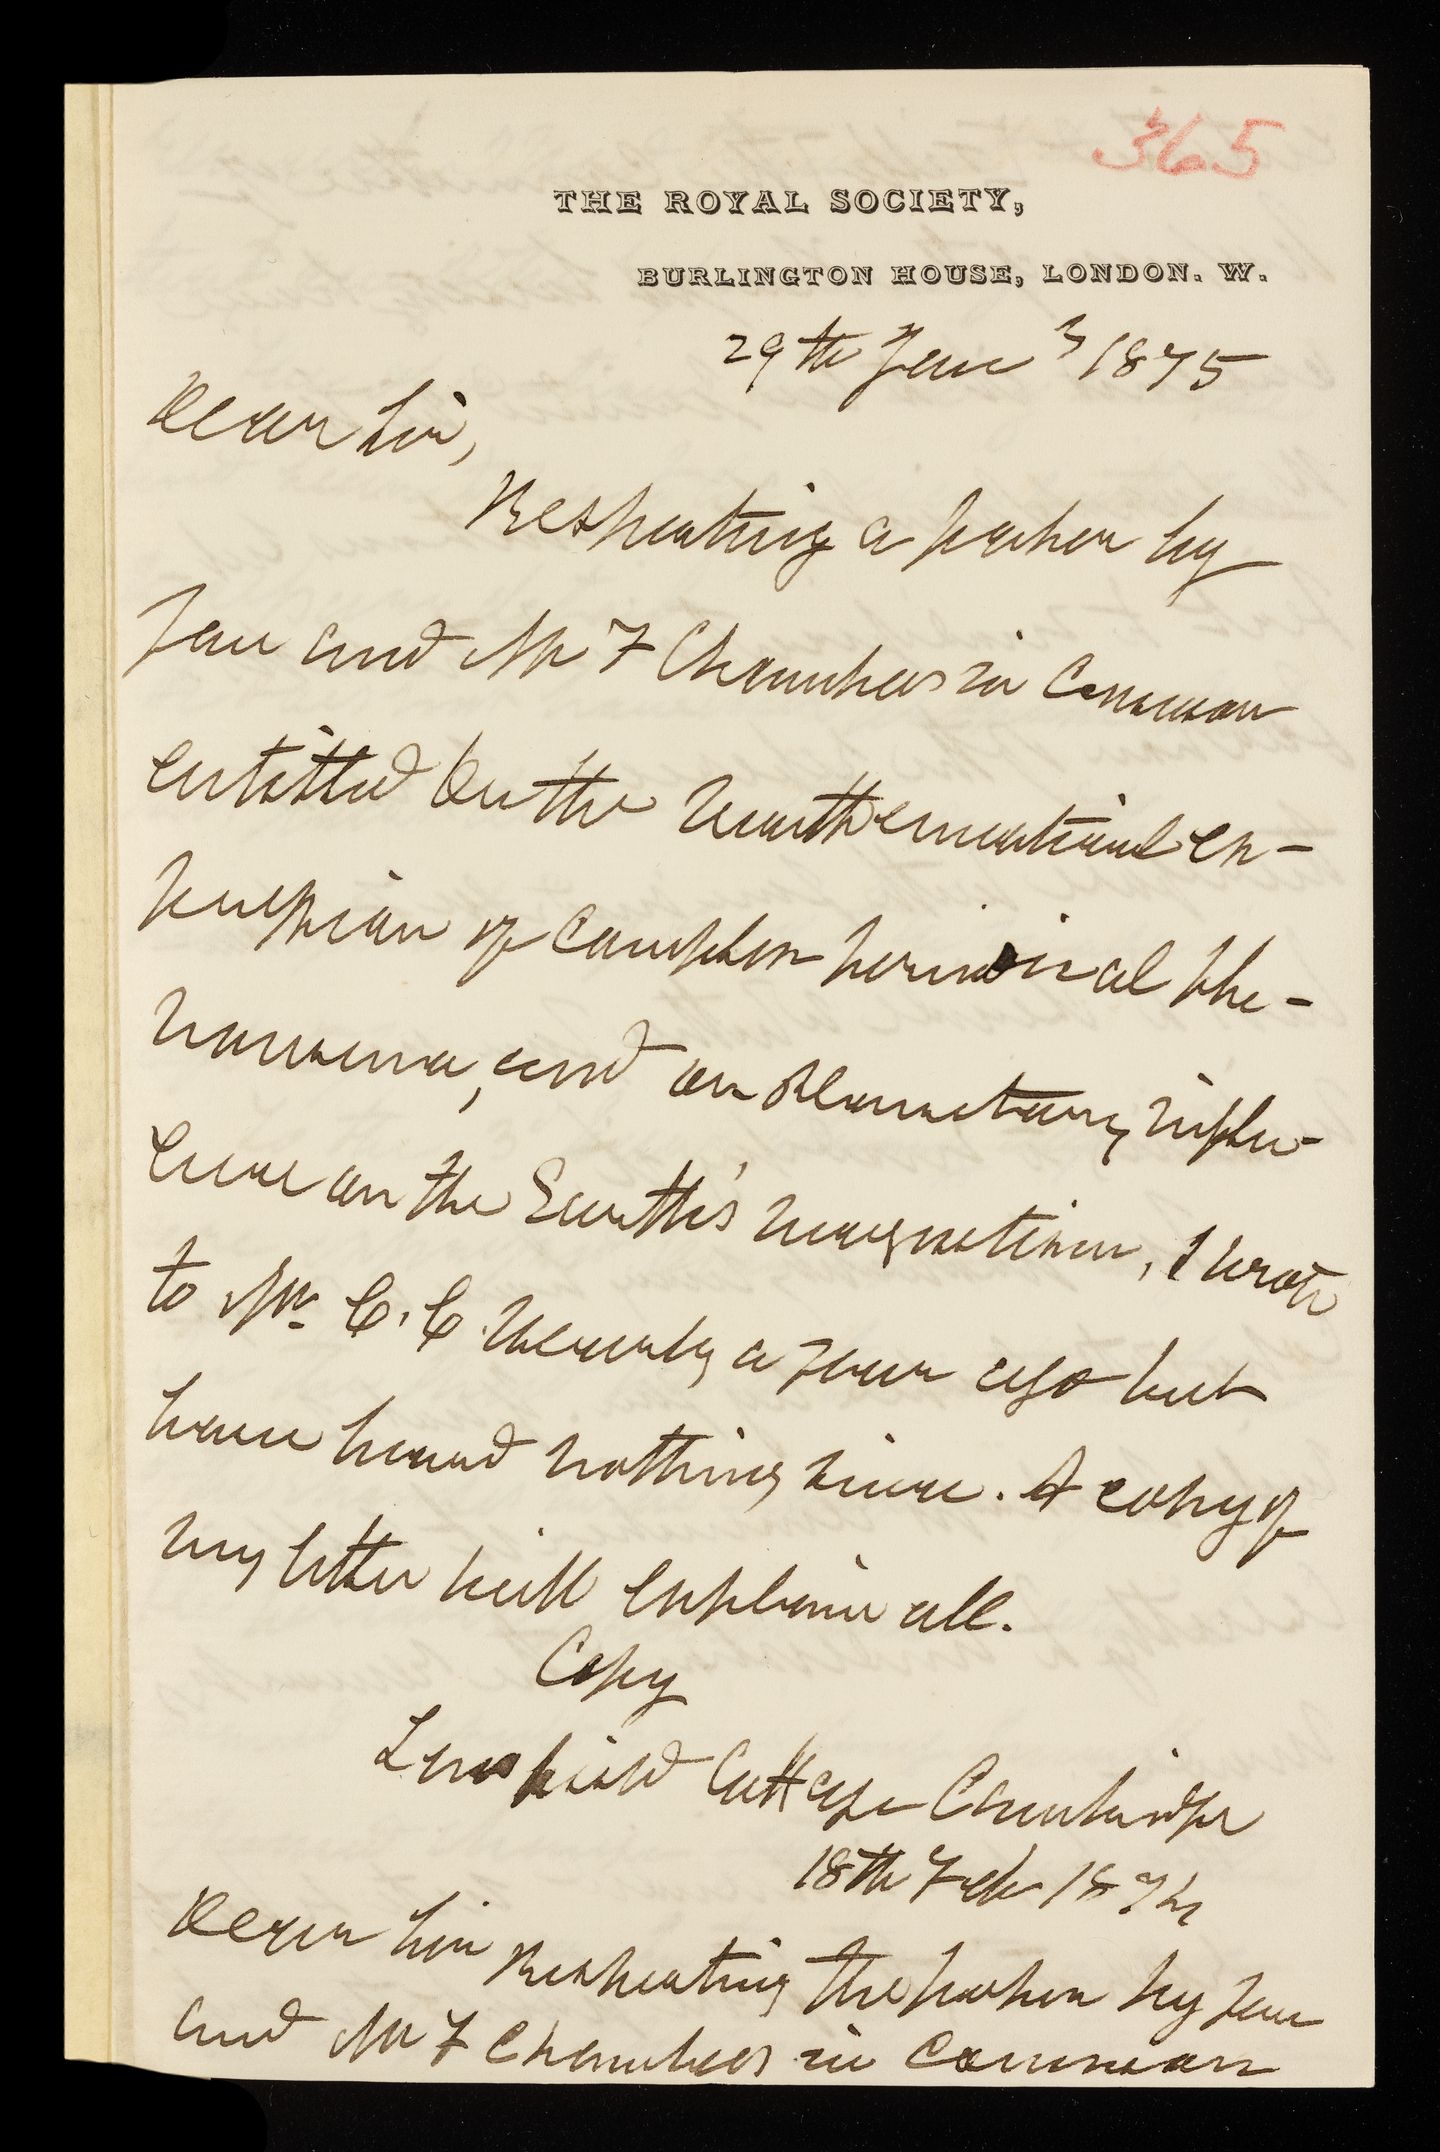 365
THE ROYAL SOCIETY,
BURLINGTON HOUSE, LONDON. W.
29th Jany 1875
Dear Sir,
Respecting a paper by
you and Mr F Chambers in common
entitled On the Mathematical ex-
pression of complex periodical phe-
nomena, and on Planetary influ-
ence on the Earth's magnetism, I wrote
to Mr. C. C. nearly a year ago but
have heard nothing since. A copy of
my letter will explain all.
Copy
Lensfield Cottage Cambridge
18th Feb 1874
Dear Sir Respecting the paper by you
and Mr F Chambers in common